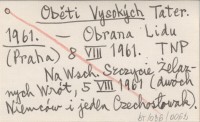 Oběti Vysokých Tater.
1961. — Obrana Lidu
(Praha) 8 VIII 1961. TNP
Na Wsch. Szczycie Żelaz-
nych Wrót, 5 VIII 1961 (dwóch
Niemców i jeden Czechosłowak).